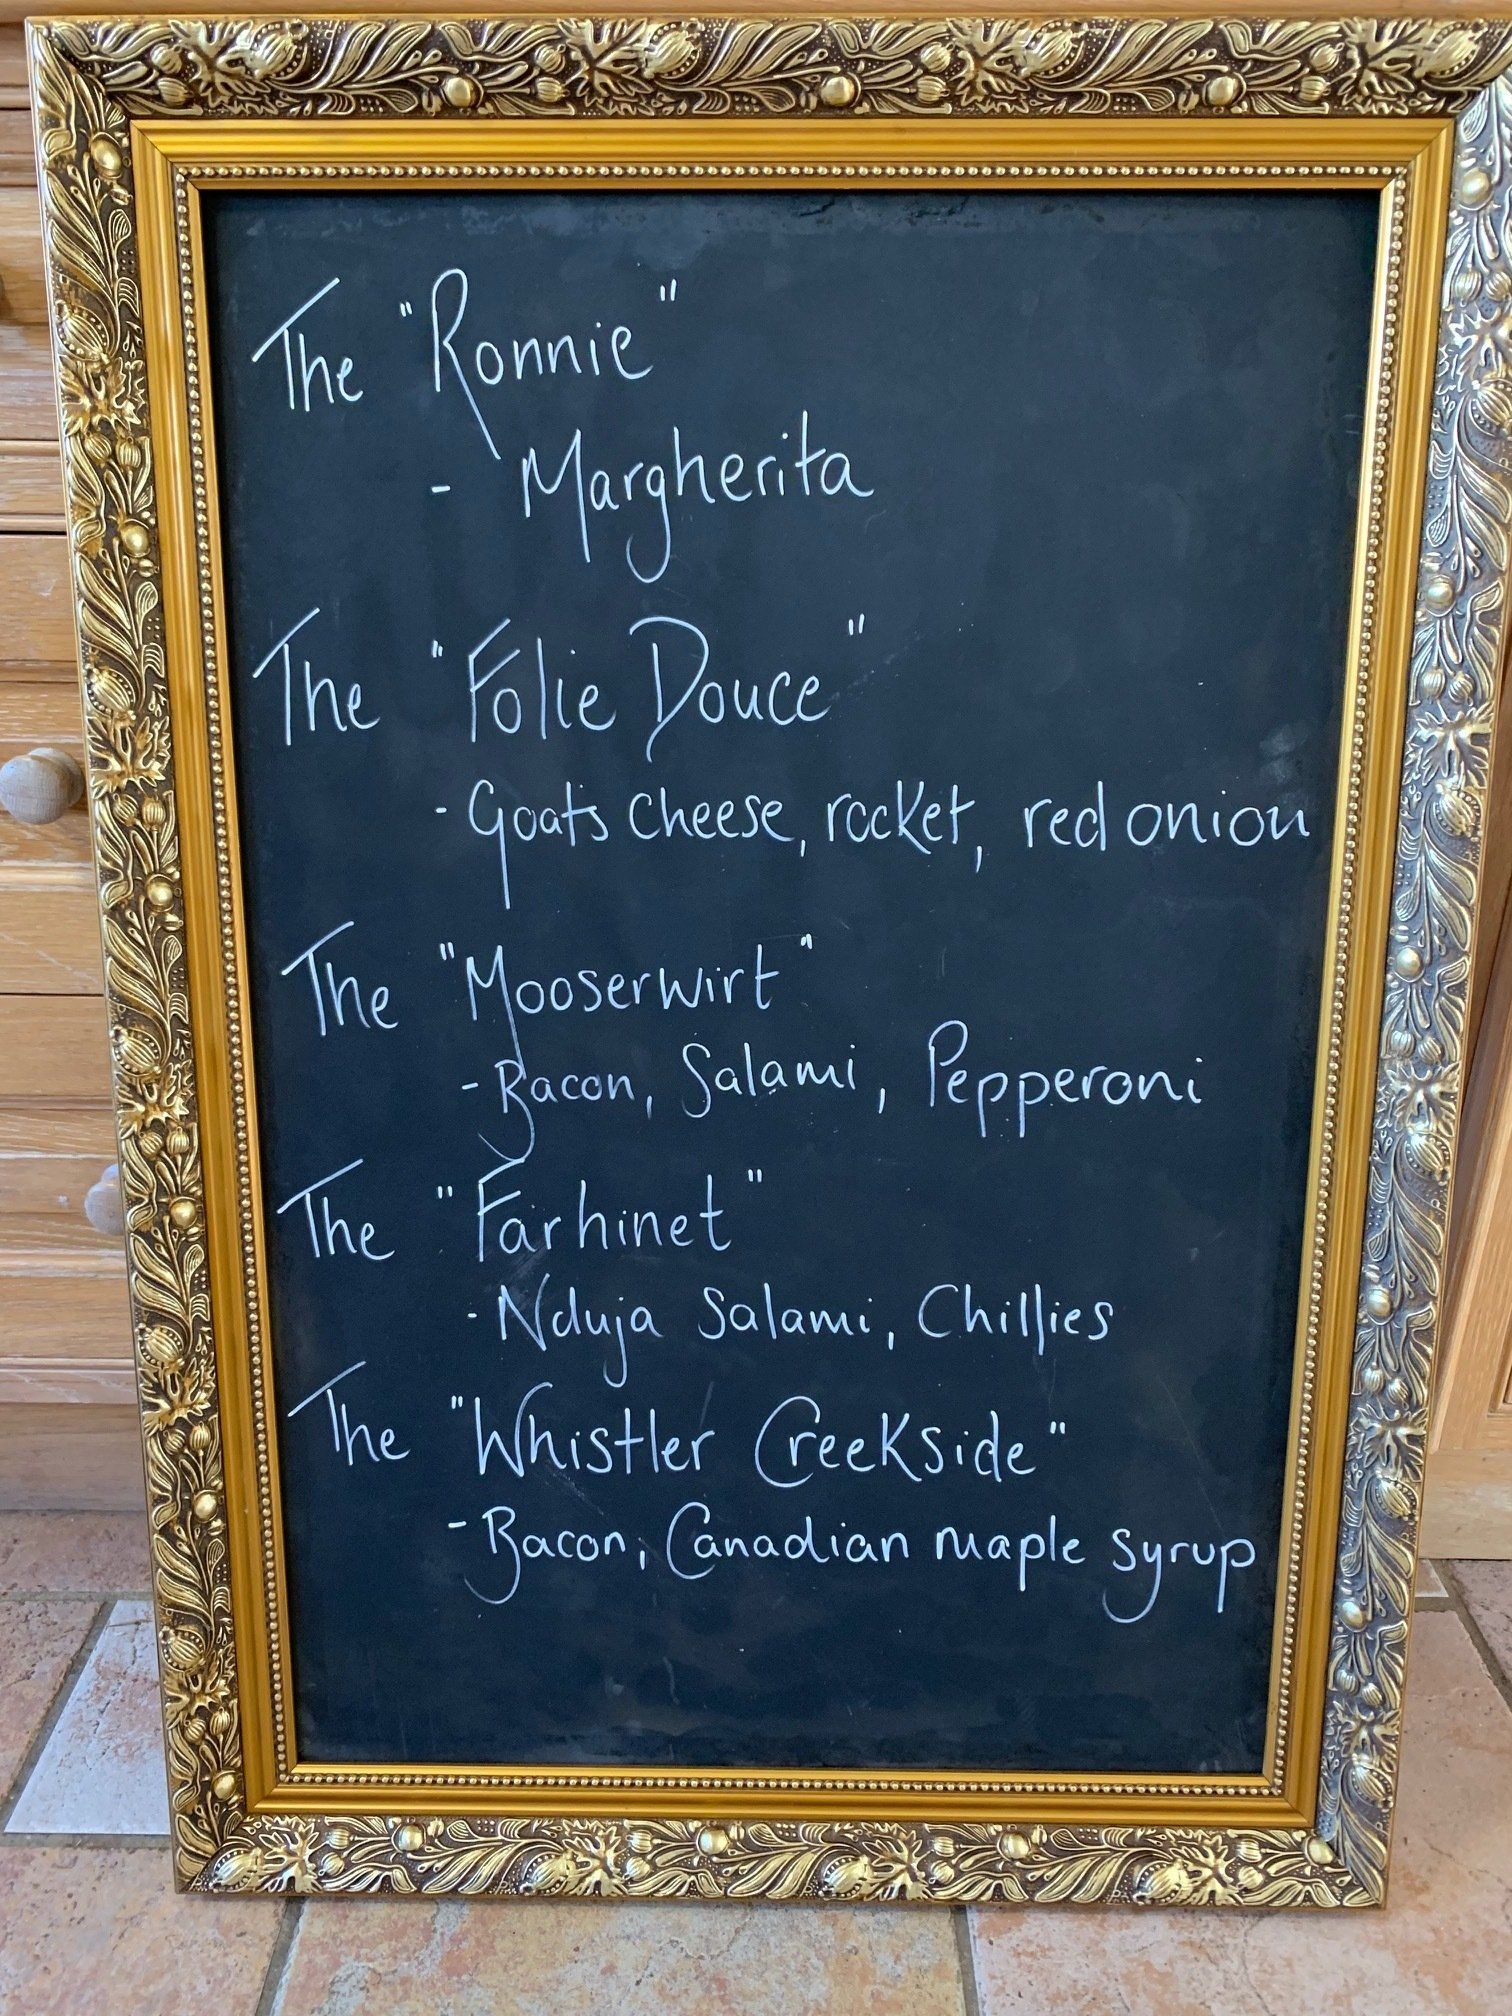 The "Ronnie"
- Margherita
The "Folie Douce"
- Goats cheese, rocket, red onion
The "Mooserwirt"
- Bacon, Salami, Pepperoni
The "Farhinet"
- Nduja Salami, Chillies
The "Whistler Creekside"
- Bacon, Canadian maple syrup